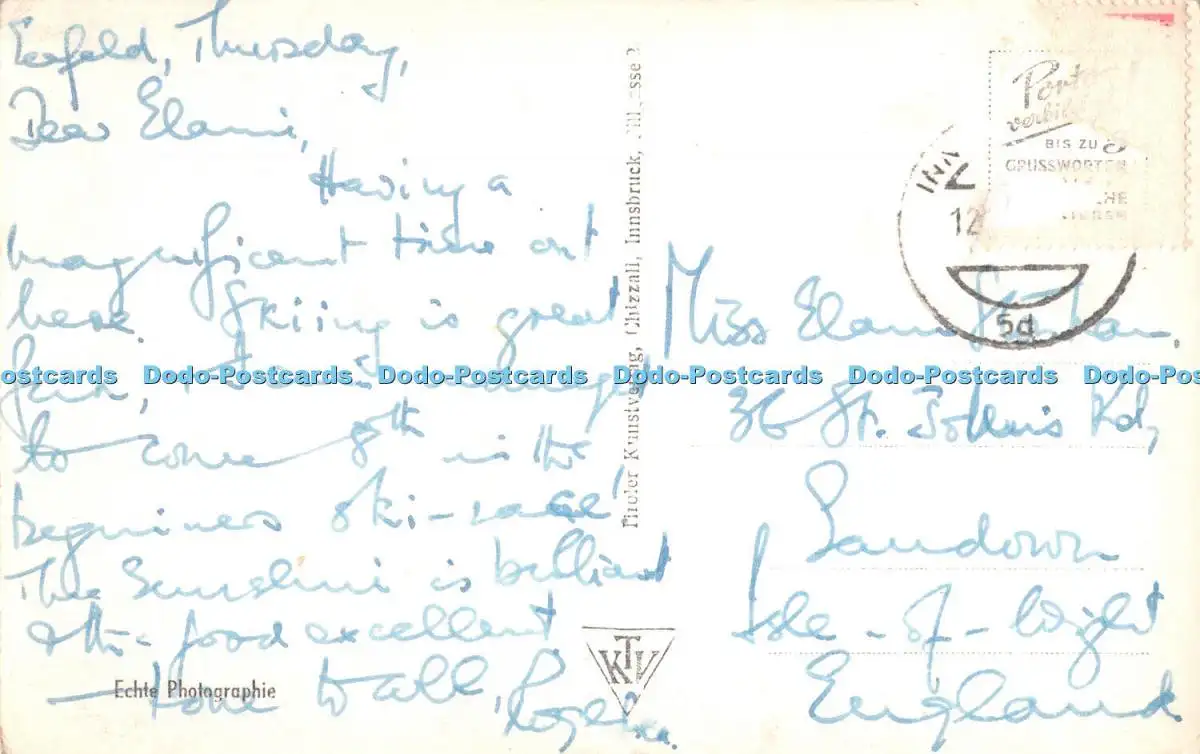 Seefeld, Thursday,
Dear Elaine,
Having a
magnificent time out
here. Skiing is great
fun,
to come 8th in the
beginners ski-race!
The Sunshine is brilliant
& the food excellent
— love to all,
Echte Photographie
Tiroler Kunstverlag, Chizzali, Innsbruck,
KTV
INN
12
5d
Porto
BIS ZU 5
GRUSSWORTEN
Miss Elaine
36 St. John's Rd,
Sandown
Isle-of-Wight
England.
Dodo-Postcards Dodo-Postcards Dodo-Postcards Dodo-Postcards